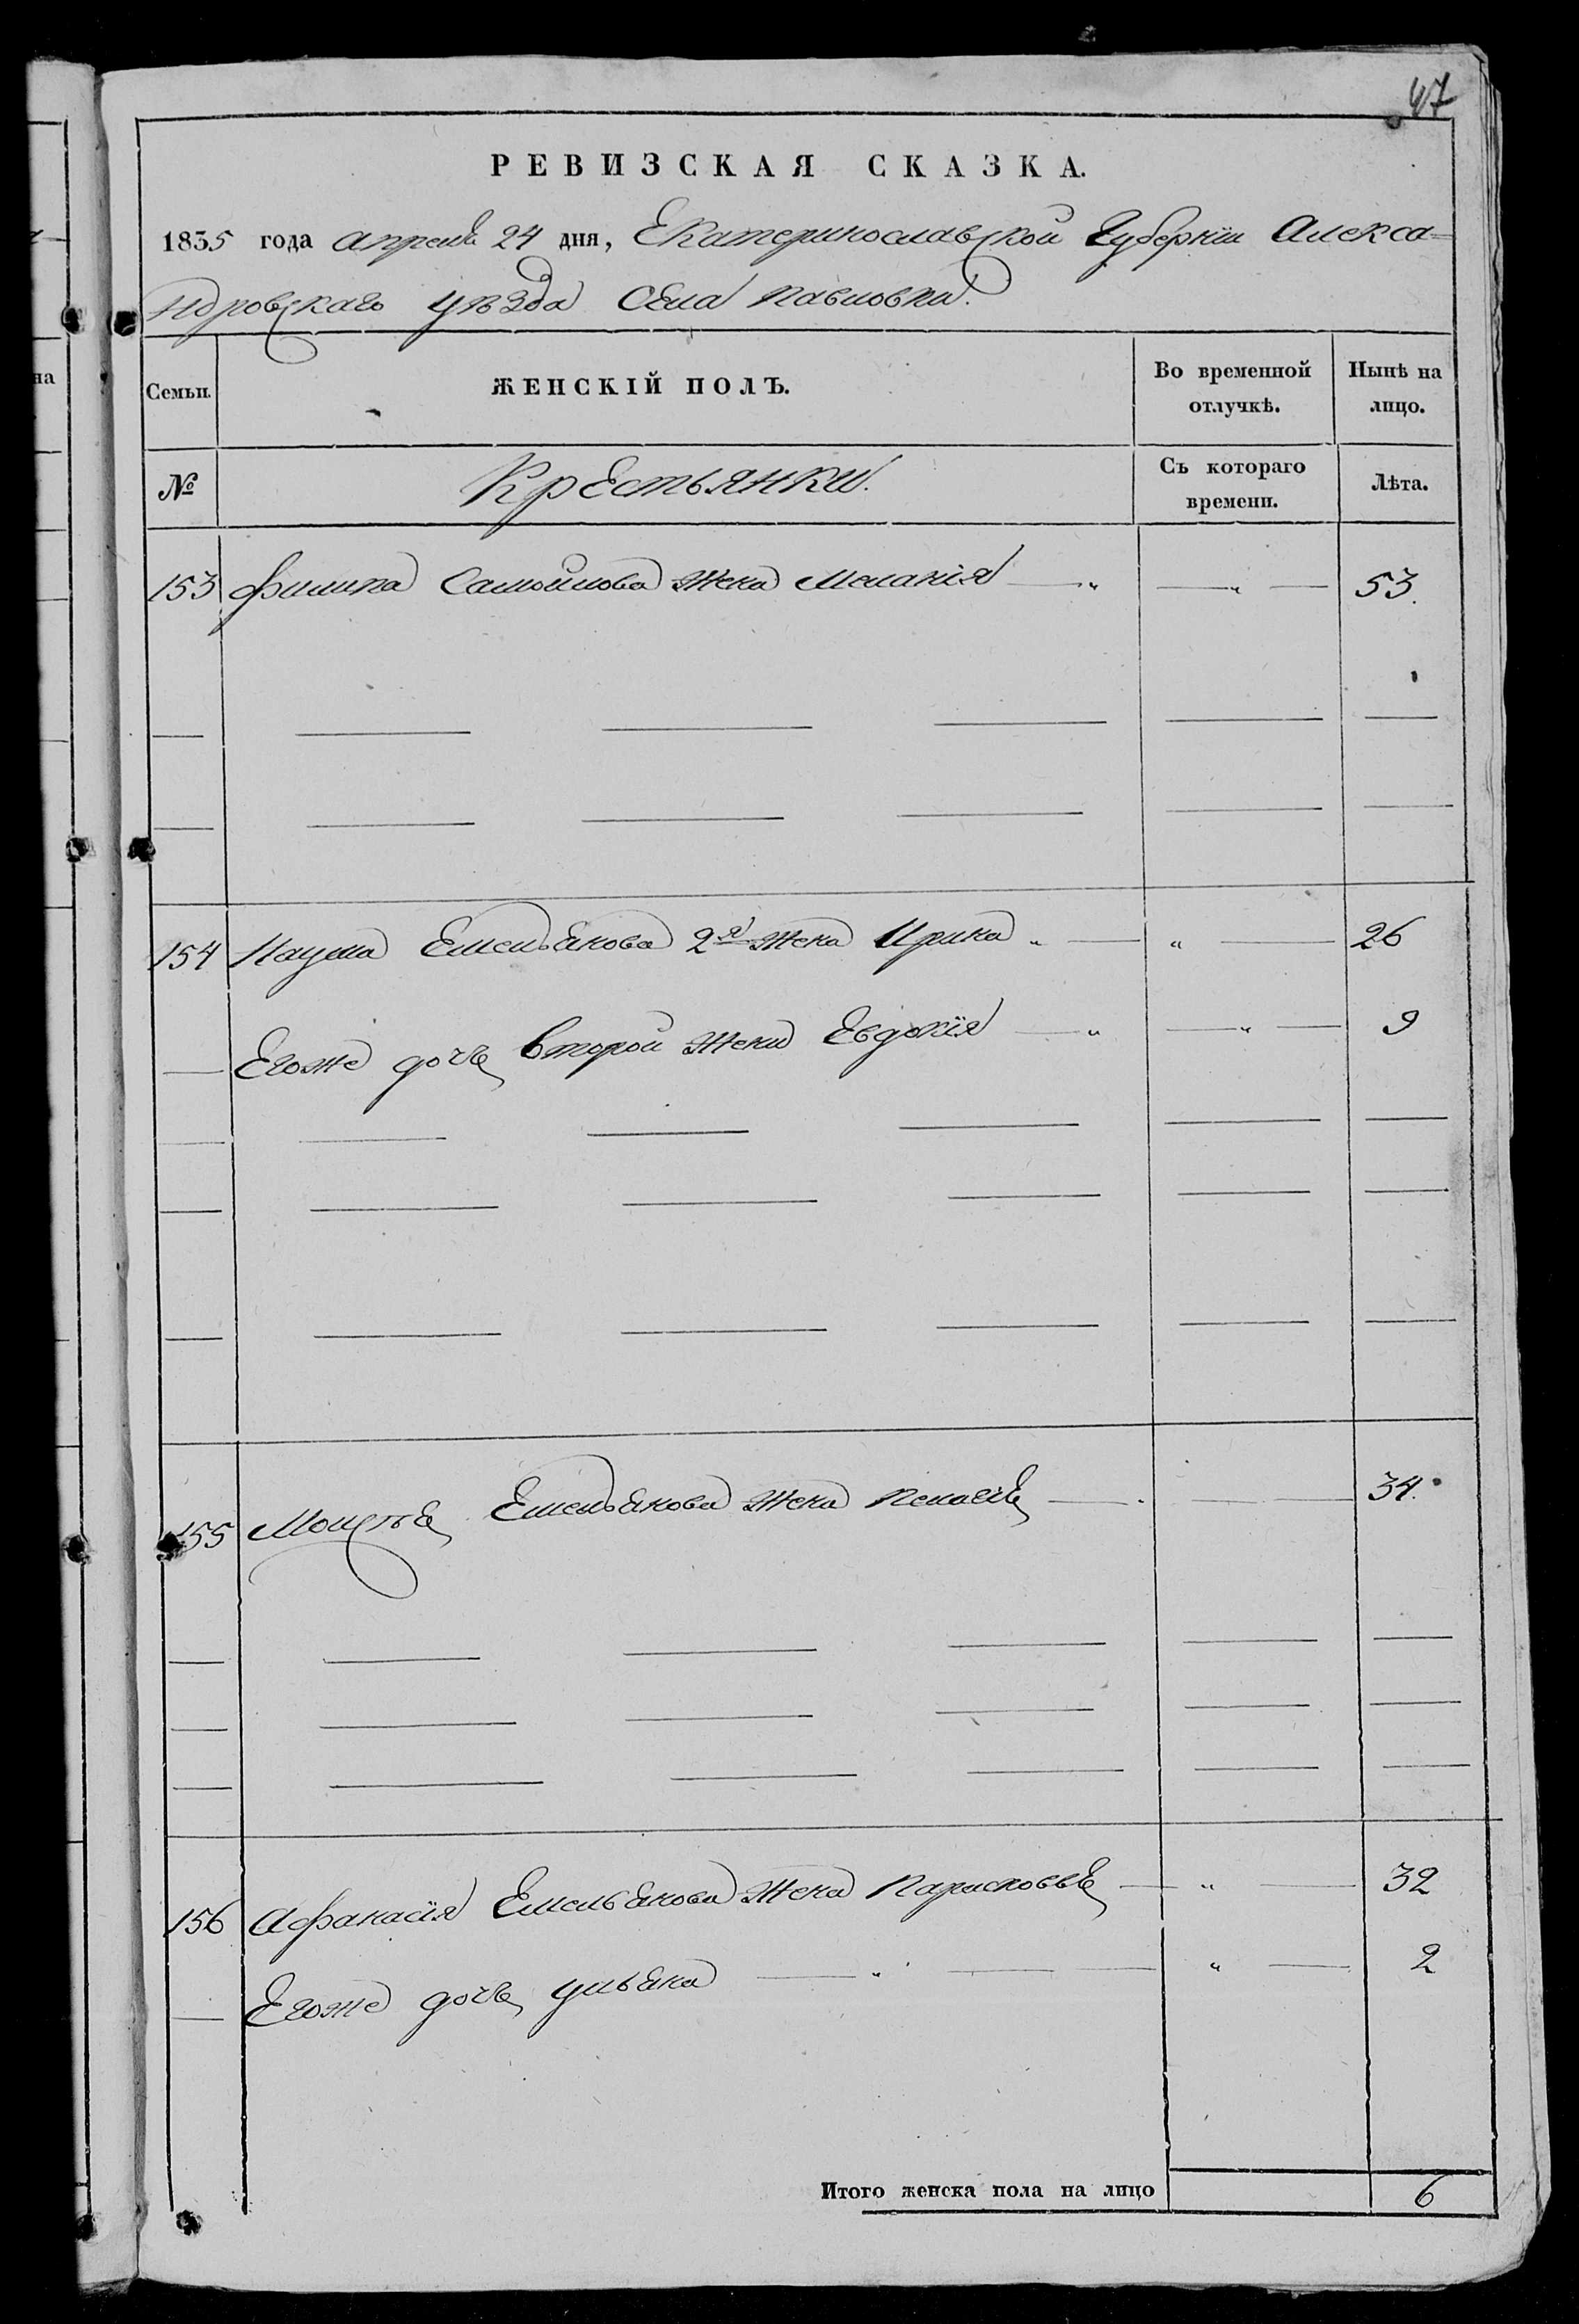 47
РЕВИЗСКАЯ СКАЗКА.
1835 года апреля 24 дня, Екатеринославской Губернїи Алекса=
ндровскаго уѣзда Села Павловки.
на
Семьи.
ЖЕНСКІЙ ПОЛЪ.
Во временной отлучкѣ.
Нынѣ на лицо.
№
Крестьянки.
Съ котораго времени.
Лѣта.
153 Филипа Самойлова жена Меланія — " — " — 53.
154 Наума Емельянова 2я жена Ирина " — " — 26
Егоже дочь второй жены Евдокїя — " — " — 9
155 Моисѣя Емельянова жена Пелагея — 34.
156 Афанасїя Емельянова жена Парасковья — " — 32
Егоже дочь ульяна — " — " — 2
Итого женска пола на лицо 6